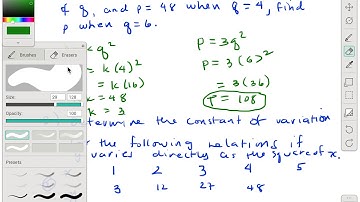 & q, and p = 48 when q = 4, find
p when q = 6.
Brushes
Erasers
Size:
Opacity:
100
Presets
q²
k(4)²
k(16)
= 48
= 3
p = 3q²
p = 3(6)²
= 3(36)
p = 108
termine the constant of variation
r the following relations if
varies directly as the square of x.
1 2 3 4 5
3 12 27 48